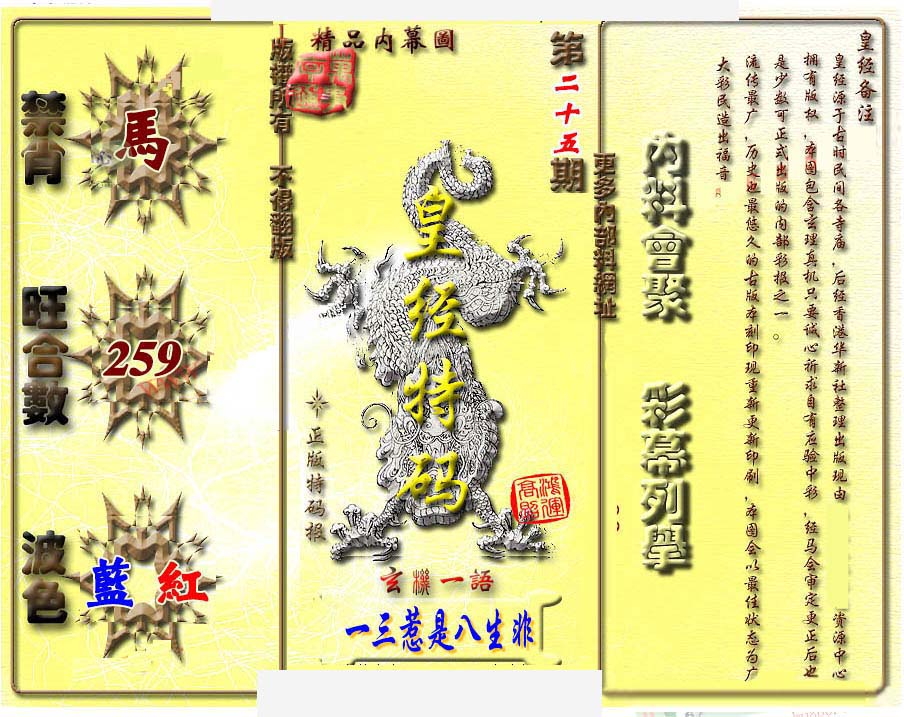 精品内幕圖
第二十五期
版權所有 不得翻版
更多內部料網址
禁肖
馬
旺合數
259
波色
藍 紅
皇经特码
正版特码报
鴻運高照
玄機一語
一三惹是八生非
内料會聚 彩幕列舉
皇经备注
皇经源于古时民间各寺庙,后经香港华新社整理出版现由 资源中心
拥有版权,本图包含玄理真机只要诚心祈求自有应验中彩,经马会审定更正后也
是少数可正式出版的内部彩报之一。
流传最广,历史也最悠久的古版本刻印现重新更新印刷,本图会以最佳状态为广
大彩民造出福音